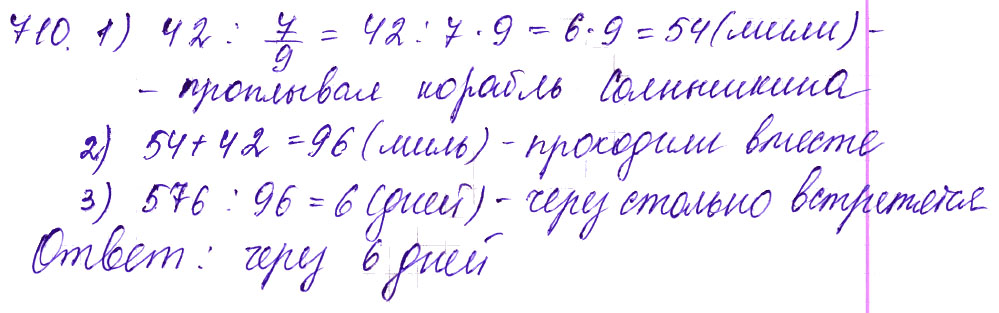 710. 1) 42 : 7/9 = 42 : 7 · 9 = 6 · 9 = 54 (мили) -
- проплывал корабль Солнышкина
2) 54 + 42 = 96 (миль) - проходили вместе
3) 576 : 96 = 6 (дней) - через столько встретятся
Ответ: через 6 дней